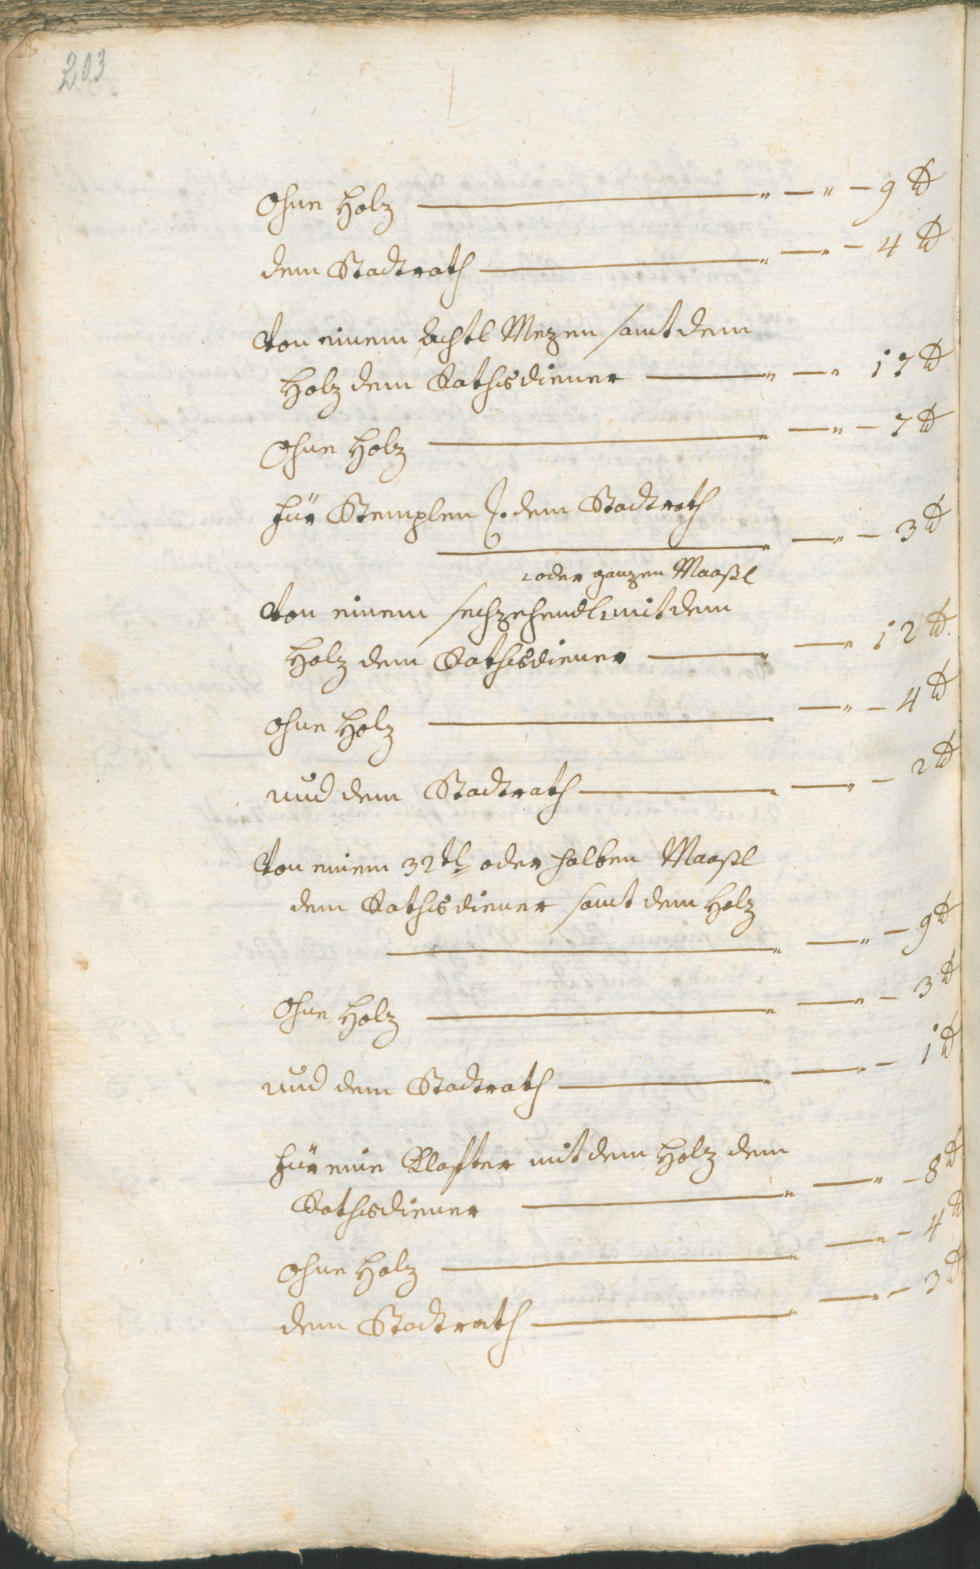 203
Ohne Holz — " — " — 9 ₰
dem Stadtrath — " — " — 4 ₰
Von einem Achtl Mezen samt dem
Holz dem Rathsdiener — " — " 17 ₰
Ohne Holz — " — " — 7 ₰
für Stemplen dem Stadtrath
— " — " — 3 ₰
oder ganzen Maaßl
Von einem sechzehendl mit dem
Holz dem Rathsdiener — " — " 12 ₰
Ohne Holz — " — " — 4 ₰
und dem Stadtrath — " — " — 2 ₰
Von einem 32tl oder halben Maaßl
dem Rathsdiener samt dem Holz
— " — " — 9 ₰
Ohne Holz — " — " — 3 ₰
und dem Stadtrath — " — " — 1 ₰
für eine Klafter mit dem Holz dem
Rathsdiener — " — " — 8 ₰
Ohne Holz — " — " — 4 ₰
dem Stadtrath — " — " — 3 ₰